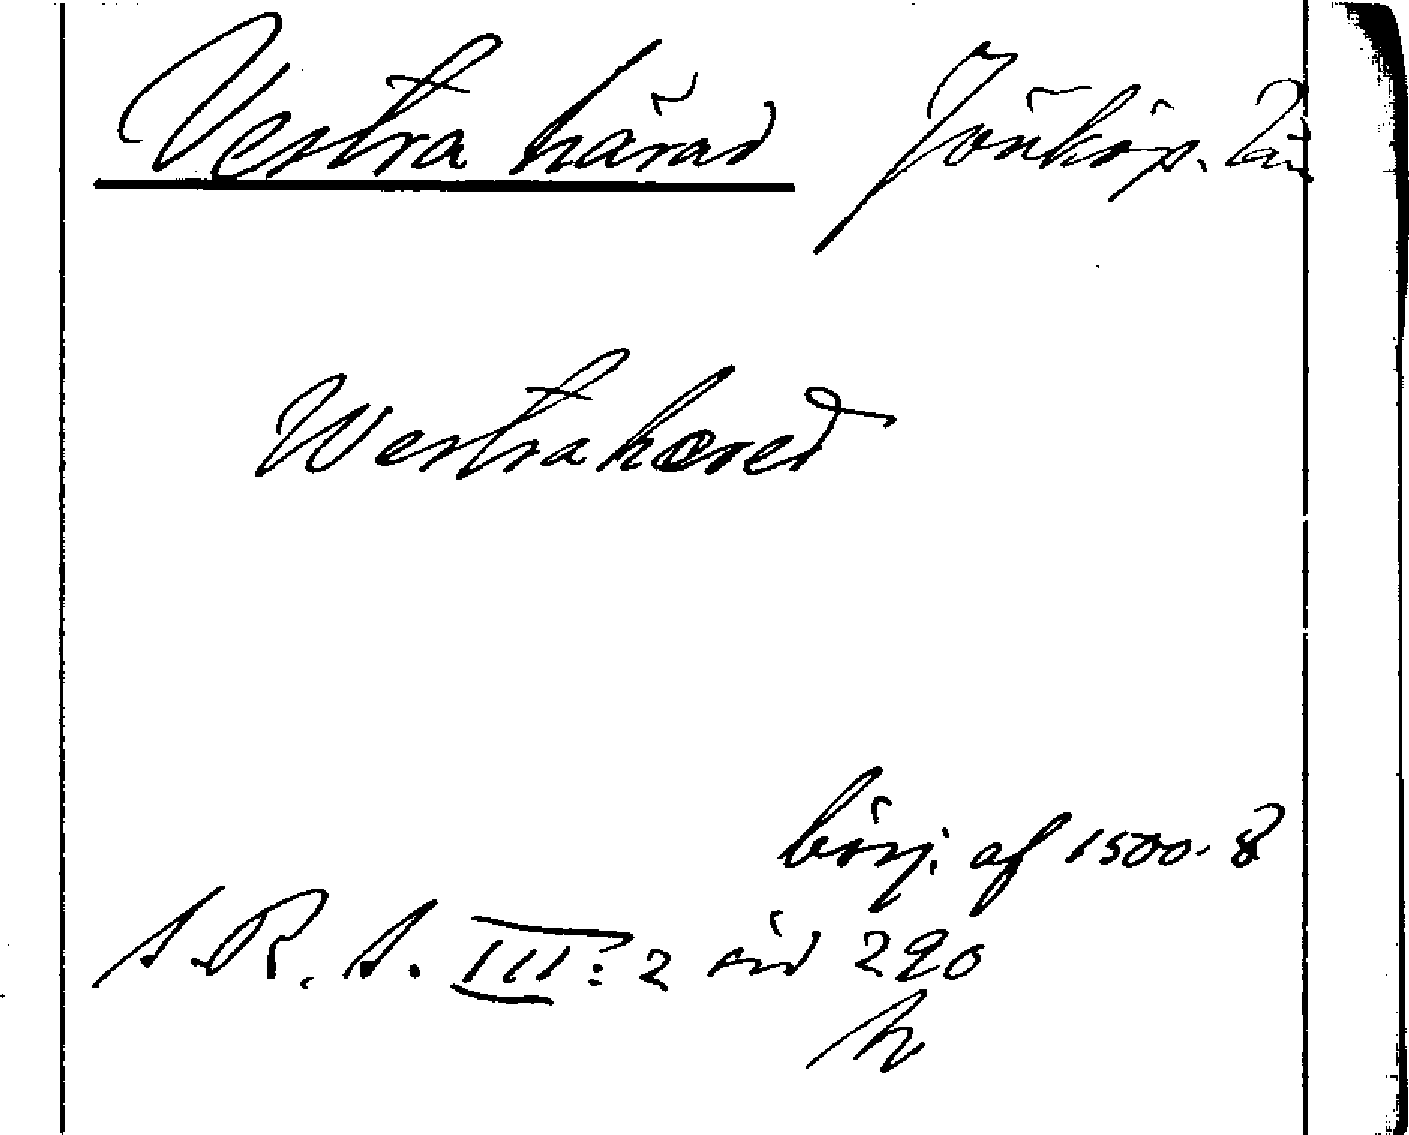 Vestra härad Jönköp. Län
Westrahæred
börj. af 1500-t
S.R.S. III:2 sid 290
h